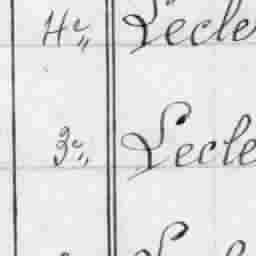 4e,, Lecle
3e,, Lecle